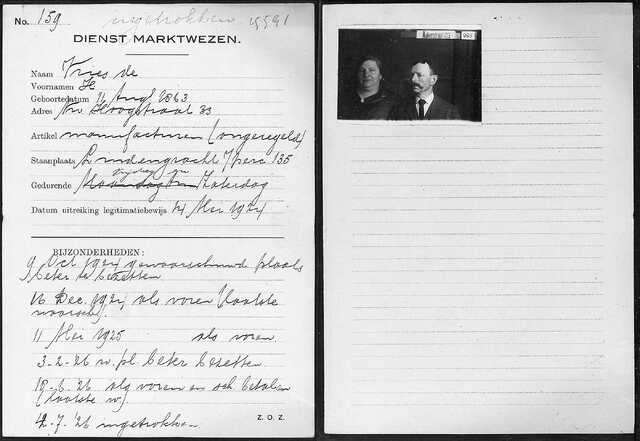 No. 159 ingetrokken 15591
DIENST MARKTWEZEN.
Naam Vries de
Voornamen H
Geboortedatum 11 Aug 1863
Adres Nw Hoogstraat 33
Artikel manufacturen (ongeregeld)
Staanplaats Lindengracht 135
Vrijdag en
Gedurende Maandag en Zaterdag
Datum uitreiking legitimatiebewijs 14 Mei 1924
BIJZONDERHEDEN:
9 Oct. 1924 gewaarschuwd plaats
beter te bezetten
16 Dec. 1924 als voren (laatste
waarsch).
11 Mei 1925 als voren.
3-2-26 w. pl. beter bezetten
18-6-26 als voren en sch betalen
(laatste w).
2-7-'26 ingetrokken.
Z.O.Z.